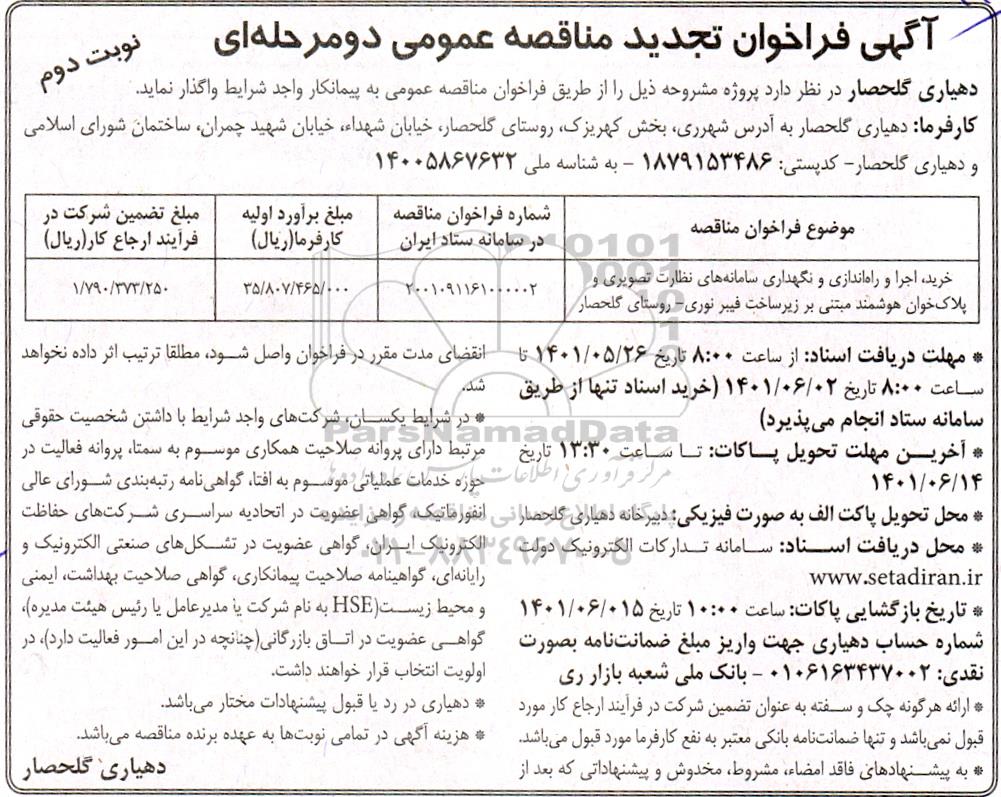 آگهی فراخوان تجدید مناقصه عمومی دومرحله‌ای
نوبت دوم
دهیاری گلحصار در نظر دارد پروژه مشروحه ذیل را از طریق فراخوان مناقصه عمومی به پیمانکار واجد شرایط واگذار نماید.
کارفرما: دهیاری گلحصار به آدرس شهرری، بخش کهریزک، روستای گلحصار، خیابان شهداء، خیابان شهید چمران، ساختمان شورای اسلامی
و دهیاری گلحصار- کدپستی: ۱۸۷۹۱۵۳۴۸۶ - به شناسه ملی ۱۴۰۰۵۸۶۷۶۳۲
موضوع فراخوان مناقصه
شماره فراخوان مناقصه
در سامانه ستاد ایران
مبلغ برآورد اولیه
کارفرما(ریال)
مبلغ تضمین شرکت در
فرآیند ارجاع کار(ریال)
خرید، اجرا و راه‌اندازی و نگهداری سامانه‌های نظارت تصویری و
پلاک‌خوان هوشمند مبتنی بر زیرساخت فیبر نوری- روستای گلحصار
۲۰۰۱۰۹۱۱۶۱۰۰۰۰۰۲
۳۵/۸۰۷/۴۶۵/۰۰۰
۱/۷۹۰/۳۷۳/۲۵۰
* مهلت دریافت اسناد: از ساعت ۸:۰۰ تاریخ ۱۴۰۱/۰۵/۲۶ تا
ساعت ۸:۰۰ تاریخ ۱۴۰۱/۰۶/۰۲ (خرید اسناد تنها از طریق
سامانه ستاد انجام می‌پذیرد)
* آخرین مهلت تحویل پاکات: تا ساعت ۱۳:۳۰ تاریخ
۱۴۰۱/۰۶/۱۴
* محل تحویل پاکت الف به صورت فیزیکی: دبیرخانه دهیاری گلحصار
* محل دریافت اسناد: سامانه تدارکات الکترونیک دولت
www.setadiran.ir
* تاریخ بازگشایی پاکات: ساعت ۱۰:۰۰ تاریخ ۱۴۰۱/۰۶/۰۱۵
شماره حساب دهیاری جهت واریز مبلغ ضمانت‌نامه بصورت
نقدی: ۰۱۰۶۱۶۳۴۳۷۰۰۲ - بانک ملی شعبه بازار ری
* ارائه هرگونه چک و سفته به عنوان تضمین شرکت در فرآیند ارجاع کار مورد
قبول نمی‌باشد و تنها ضمانت‌نامه بانکی معتبر به نفع کارفرما مورد قبول می‌باشد.
* به پیشنهادهای فاقد امضاء، مشروط، مخدوش و پیشنهاداتی که بعد از
انقضای مدت مقرر در فراخوان واصل شود، مطلقا ترتیب اثر داده نخواهد
شد.
* در شرایط یکسان، شرکت‌های واجد شرایط با داشتن شخصیت حقوقی
مرتبط دارای پروانه صلاحیت همکاری موسوم به سمتا، پروانه فعالیت در
حوزه خدمات عملیاتی موسوم به افتا، گواهی‌نامه رتبه‌بندی شورای عالی
انفورماتیک، گواهی عضویت در اتحادیه سراسری شرکت‌های حفاظت
الکترونیک ایران، گواهی عضویت در تشکل‌های صنعتی الکترونیک و
رایانه‌ای، گواهینامه صلاحیت پیمانکاری، گواهی صلاحیت بهداشت، ایمنی
و محیط زیست(HSE به نام شرکت یا مدیرعامل یا رئیس هیئت مدیره)،
گواهی عضویت در اتاق بازرگانی(چنانچه در این امور فعالیت دارد)، در
اولویت انتخاب قرار خواهند داشت.
* دهیاری در رد یا قبول پیشنهادات مختار می‌باشد.
* هزینه آگهی در تمامی نوبت‌ها به عهده برنده مناقصه می‌باشد.
دهیاری گلحصار
ParsNamadData
۰۲۱-۸۸۳۴۹۶۷۰-۵